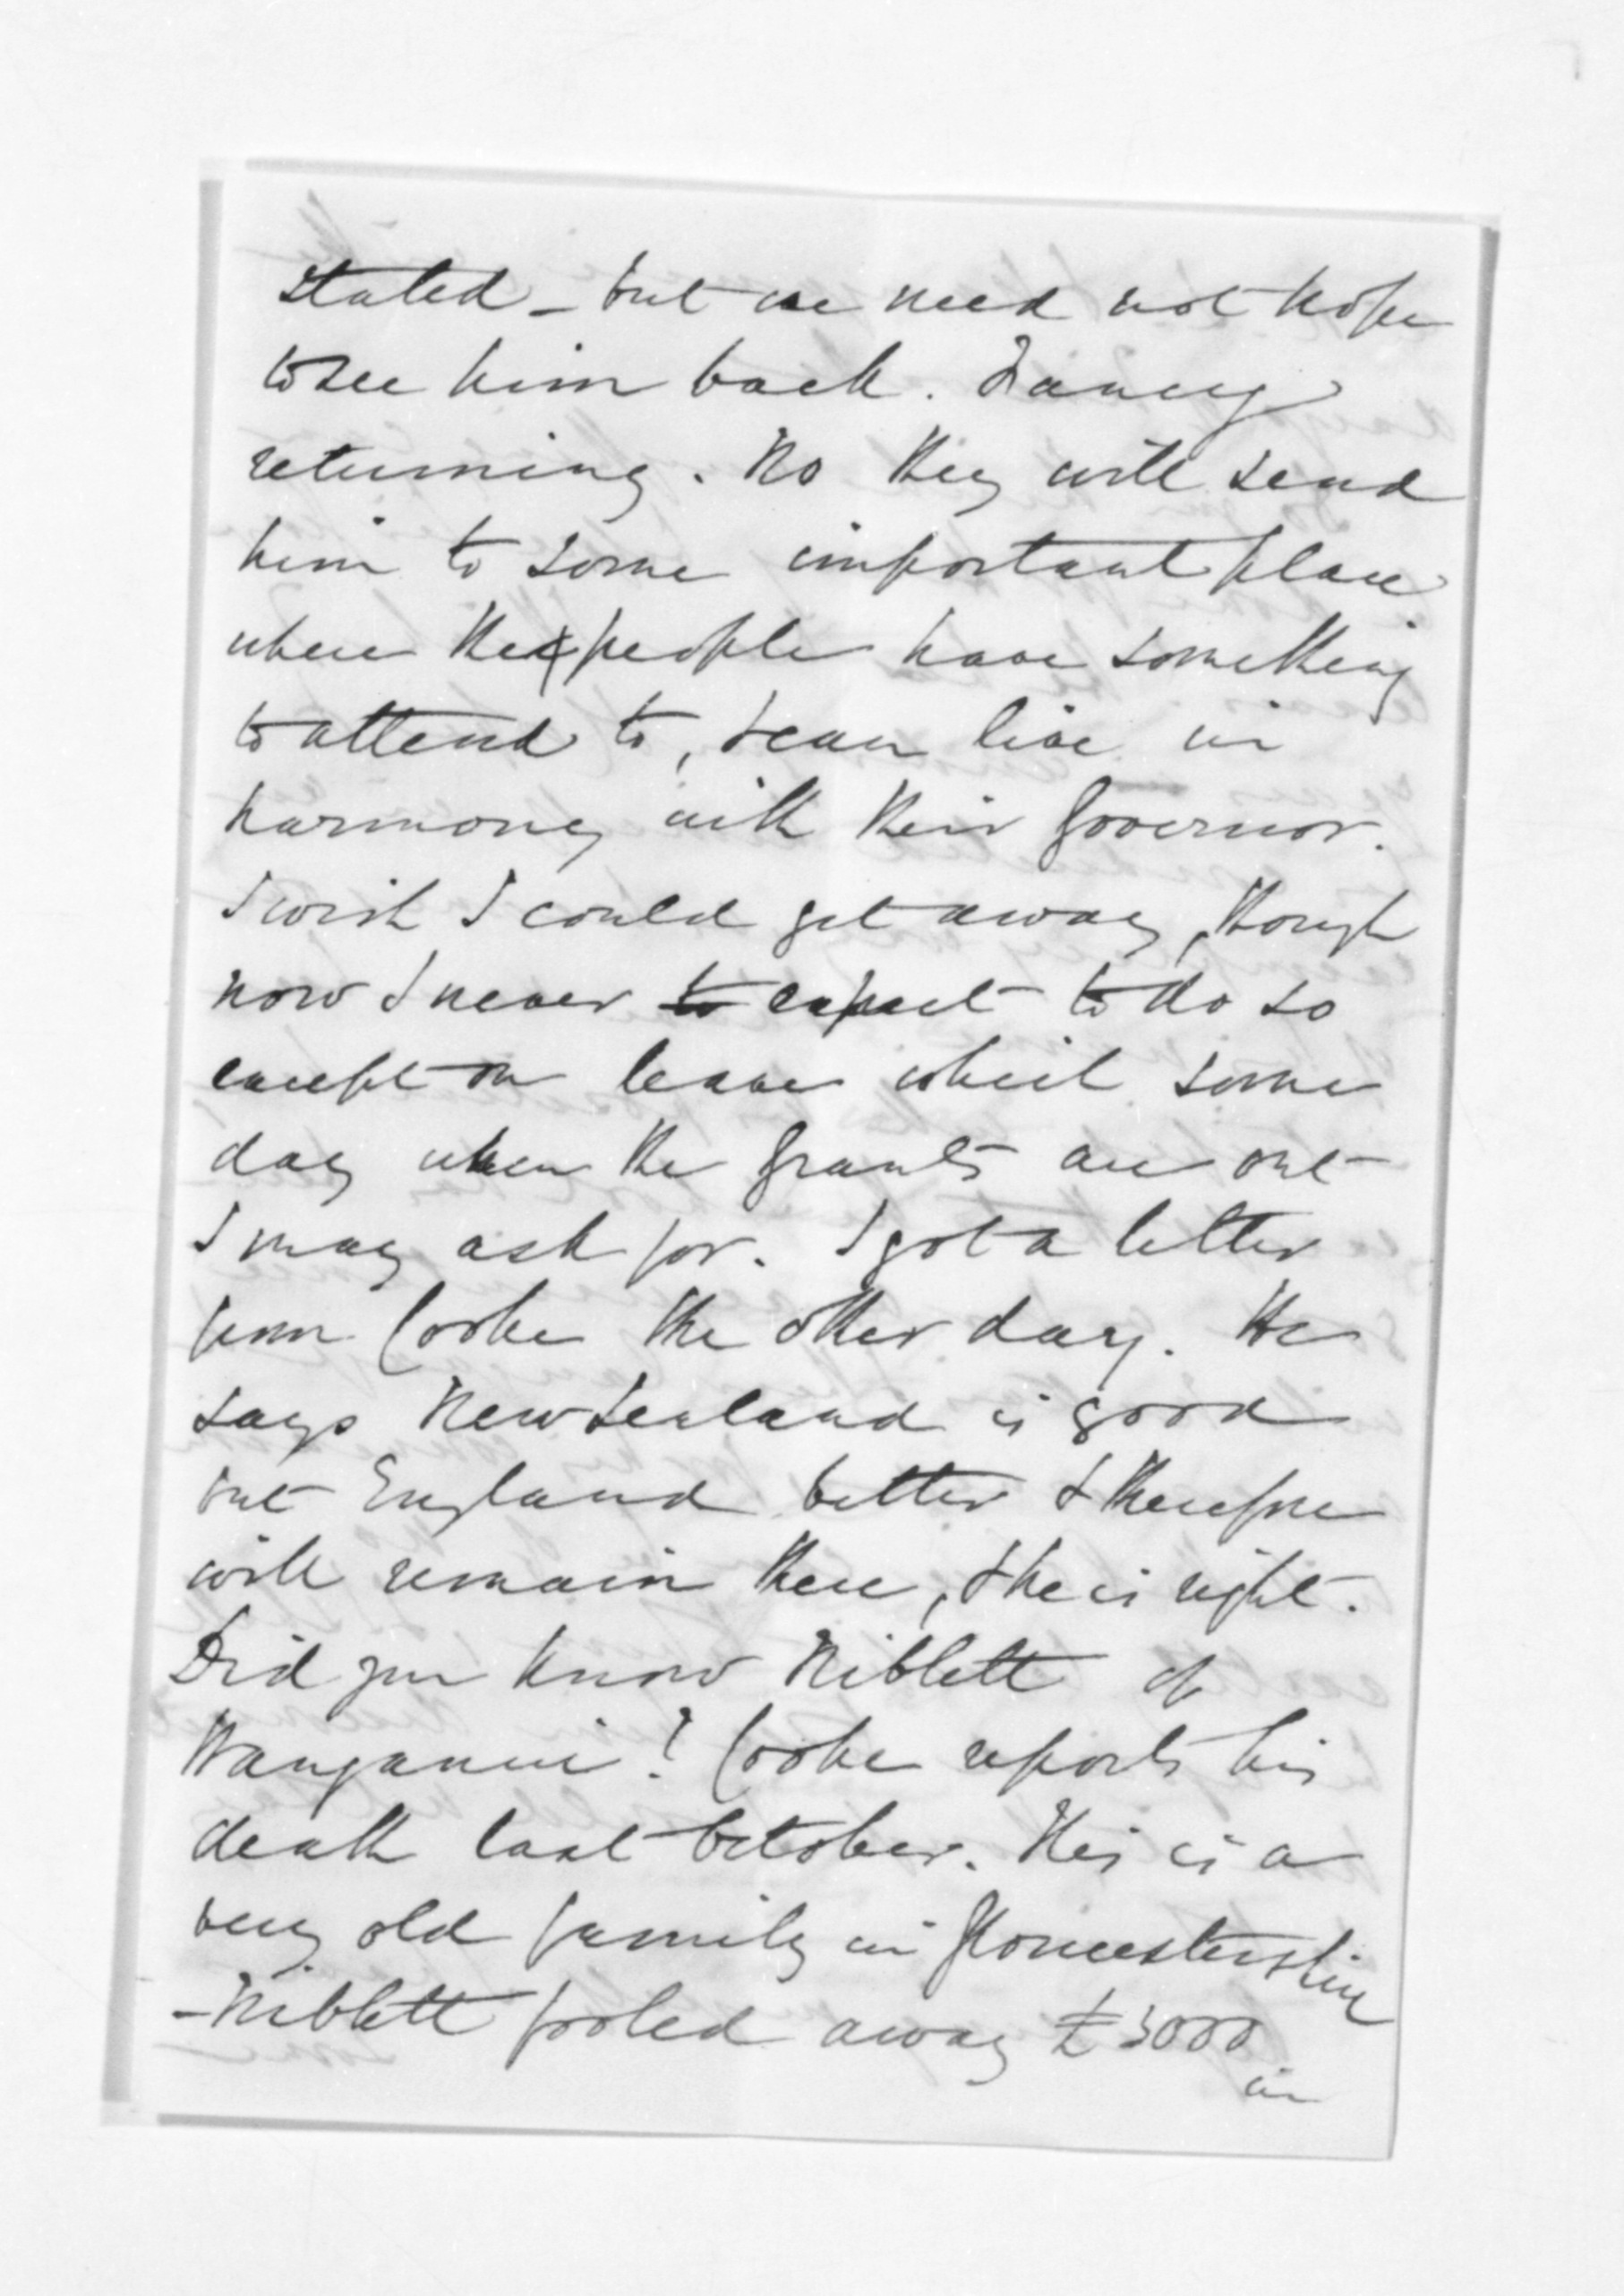 stated - but we need not hope
to see him back. Fancy
returning. No they will send
him to some important place
where the people have something
to attend to, & can live in
harmony with their Governor.
I wish I could get away, though
now I never to expect to do so
except on leave which some
day when the Grants are out
I may ask for. I got a letter
from Cooke the other day. He
says New Zealand is good
but England better & therefore
will remain there, & he is right.
Did you know Niblett of
Wanganui? Cooke reports his
death last October. His is a
very old family in Gloucestershire
- Niblett fooled away £3000
in